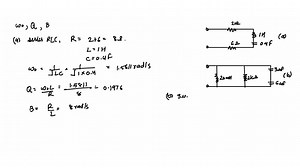 ω₀, Q, B
(a) series RLC, R = 2+6 = 8Ω
L = 1H
C = 0.4F
ω₀ = 1/√LC = 1/√1×0.4 = 1.5811 rad/s
Q = ω₀L/R = 1.5811/8 = 0.1976
B = R/L = 8 rad/s
2Ω
1H
6Ω
0.4F
(a)
3uF
(b)
6uF